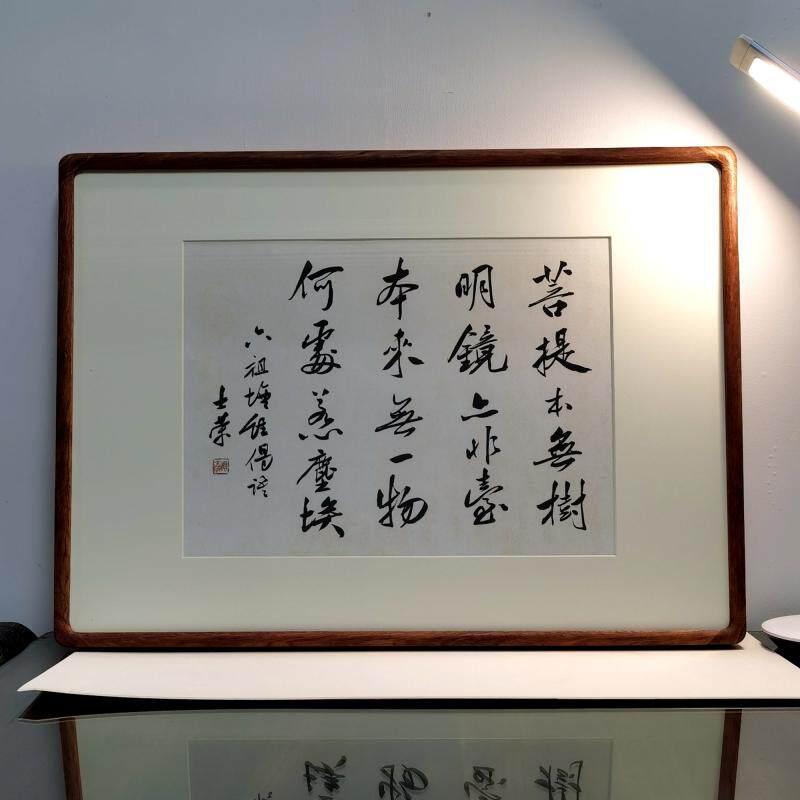 菩提本無樹
明鏡亦非臺
本來無一物
何處惹塵埃
六祖壇經偈語
士榮